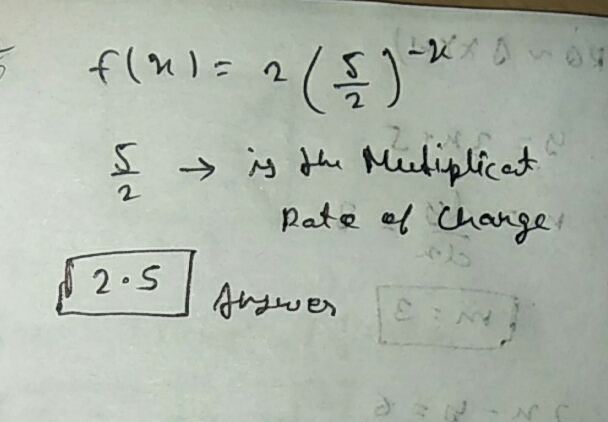 f(x) = 2(5/2)^-x
5/2 → is the Mutiplicat
Rate of Change
2.5 Answer
m = 3